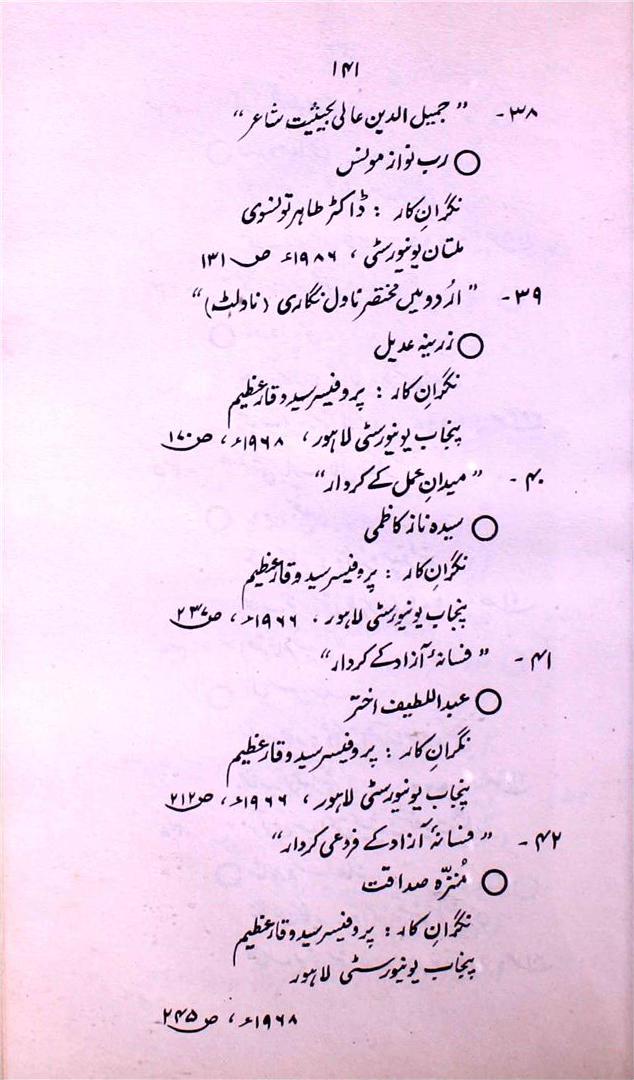 ۱۴۱
۳۸- "جمیل الدین عالی بحیثیت شاعر"
○ رب نواز مونس
نگرانِ کار : ڈاکٹر طاہر تونسوی
ملتان یونیورسٹی ، ۱۹۸۶ء ص ۱۳۱
۳۹- "اُردو میں مختصر ناول نگاری (ناولٹ)"
○ زرینہ عدیل
نگرانِ کار : پروفیسر سید وقار عظیم
پنجاب یونیورسٹی لاہور ، ۱۹۶۸ء ، ص ۱۷۰
۴۰- "میدانِ عمل کے کردار"
○ سیدہ ناز کاظمی
نگرانِ کار : پروفیسر سید وقار عظیم
پنجاب یونیورسٹی لاہور ، ۱۹۶۶ء ، ص ۲۳۷
۴۱- "فسانۂ آزاد کے کردار"
○ عبداللطیف اختر
نگرانِ کار : پروفیسر سید وقار عظیم
پنجاب یونیورسٹی لاہور ، ۱۹۶۶ء ، ص ۲۱۲
۴۲- "فسانۂ آزاد کے فروعی کردار"
○ مُنزّہ صداقت
نگرانِ کار : پروفیسر سید وقار عظیم
پنجاب یونیورسٹی لاہور
۱۹۶۸ء ، ص ۲۴۵